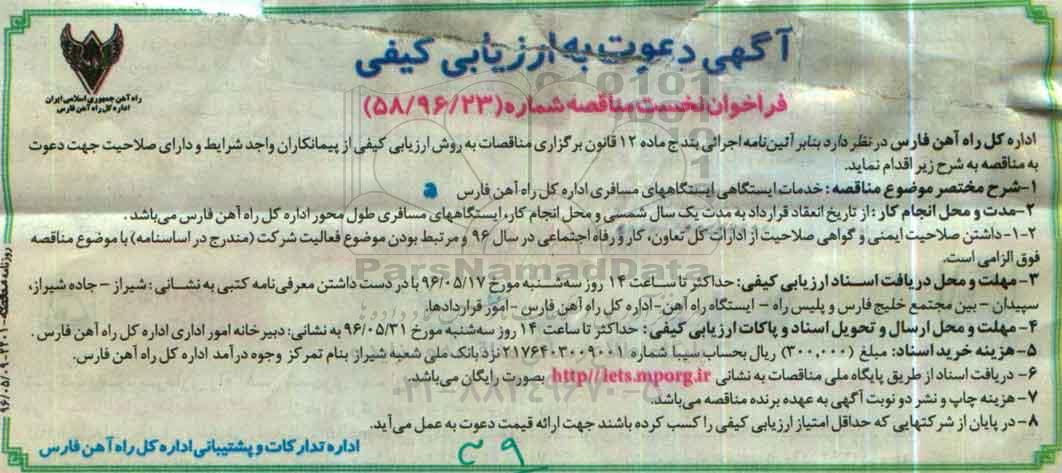 آگهی دعوت به ارزیابی کیفی
فراخوان نخست مناقصه شماره (۵۸/۹۶/۲۳)
راه آهن جمهوری اسلامی ایران
اداره کل راه آهن فارس
اداره کل راه آهن فارس در نظر دارد بنابر آئین‌نامه اجرائی بند ج ماده ۱۲ قانون برگزاری مناقصات به روش ارزیابی کیفی از پیمانکاران واجد شرایط و دارای صلاحیت جهت دعوت
به مناقصه به شرح زیر اقدام نماید.
۱-شرح مختصر موضوع مناقصه: خدمات ایستگاهی ایستگاههای مسافری اداره کل راه آهن فارس
۲-مدت و محل انجام کار: از تاریخ انعقاد قرارداد به مدت یک سال شمسی و محل انجام کار، ایستگاههای مسافری طول محور اداره کل راه آهن فارس می‌باشد.
۱-۲- داشتن صلاحیت ایمنی و گواهی صلاحیت از ادارات کل تعاون، کار و رفاه اجتماعی در سال ۹۶ و مرتبط بودن موضوع فعالیت شرکت (مندرج در اساسنامه) با موضوع مناقصه
فوق الزامی است.
۳-مهلت و محل دریافت اسناد ارزیابی کیفی: حداکثر تا ساعت ۱۴ روز سه‌شنبه مورخ ۹۶/۰۵/۱۷ با در دست داشتن معرفی‌نامه کتبی به نشانی: شیراز - جاده شیراز،
سپیدان - بین مجتمع خلیج فارس و پلیس راه - ایستگاه راه آهن -اداره کل راه آهن فارس -امور قراردادها.
۴- مهلت و محل ارسال و تحویل اسناد و پاکات ارزیابی کیفی: حداکثر تا ساعت ۱۴ روز سه‌شنبه مورخ ۹۶/۰۵/۳۱ به نشانی: دبیرخانه امور اداری اداره کل راه آهن فارس.
۵-هزینه خرید اسناد: مبلغ (۳۰۰,۰۰۰) ریال بحساب سیبا شماره ۲۱۷۶۴۰۳۰۰۹۰۰۱ نزد بانک ملی شعبه شیراز بنام تمرکز وجوه درآمد اداره کل راه آهن فارس.
۶- دریافت اسناد از طریق پایگاه ملی مناقصات به نشانی http//iets.mporg.ir بصورت رایگان می‌باشد.
۷- هزینه چاپ و نشر دو نوبت آگهی به عهده برنده مناقصه می‌باشد.
۸- در پایان از شرکتهایی که حداقل امتیاز ارزیابی کیفی را کسب کرده باشند جهت ارائه قیمت دعوت به عمل می‌آید.
اداره تدارکات و پشتیبانی اداره کل راه آهن فارس
ParsNamadData
۰۲۱-۸۸۳۴۹۶۷۰-۵